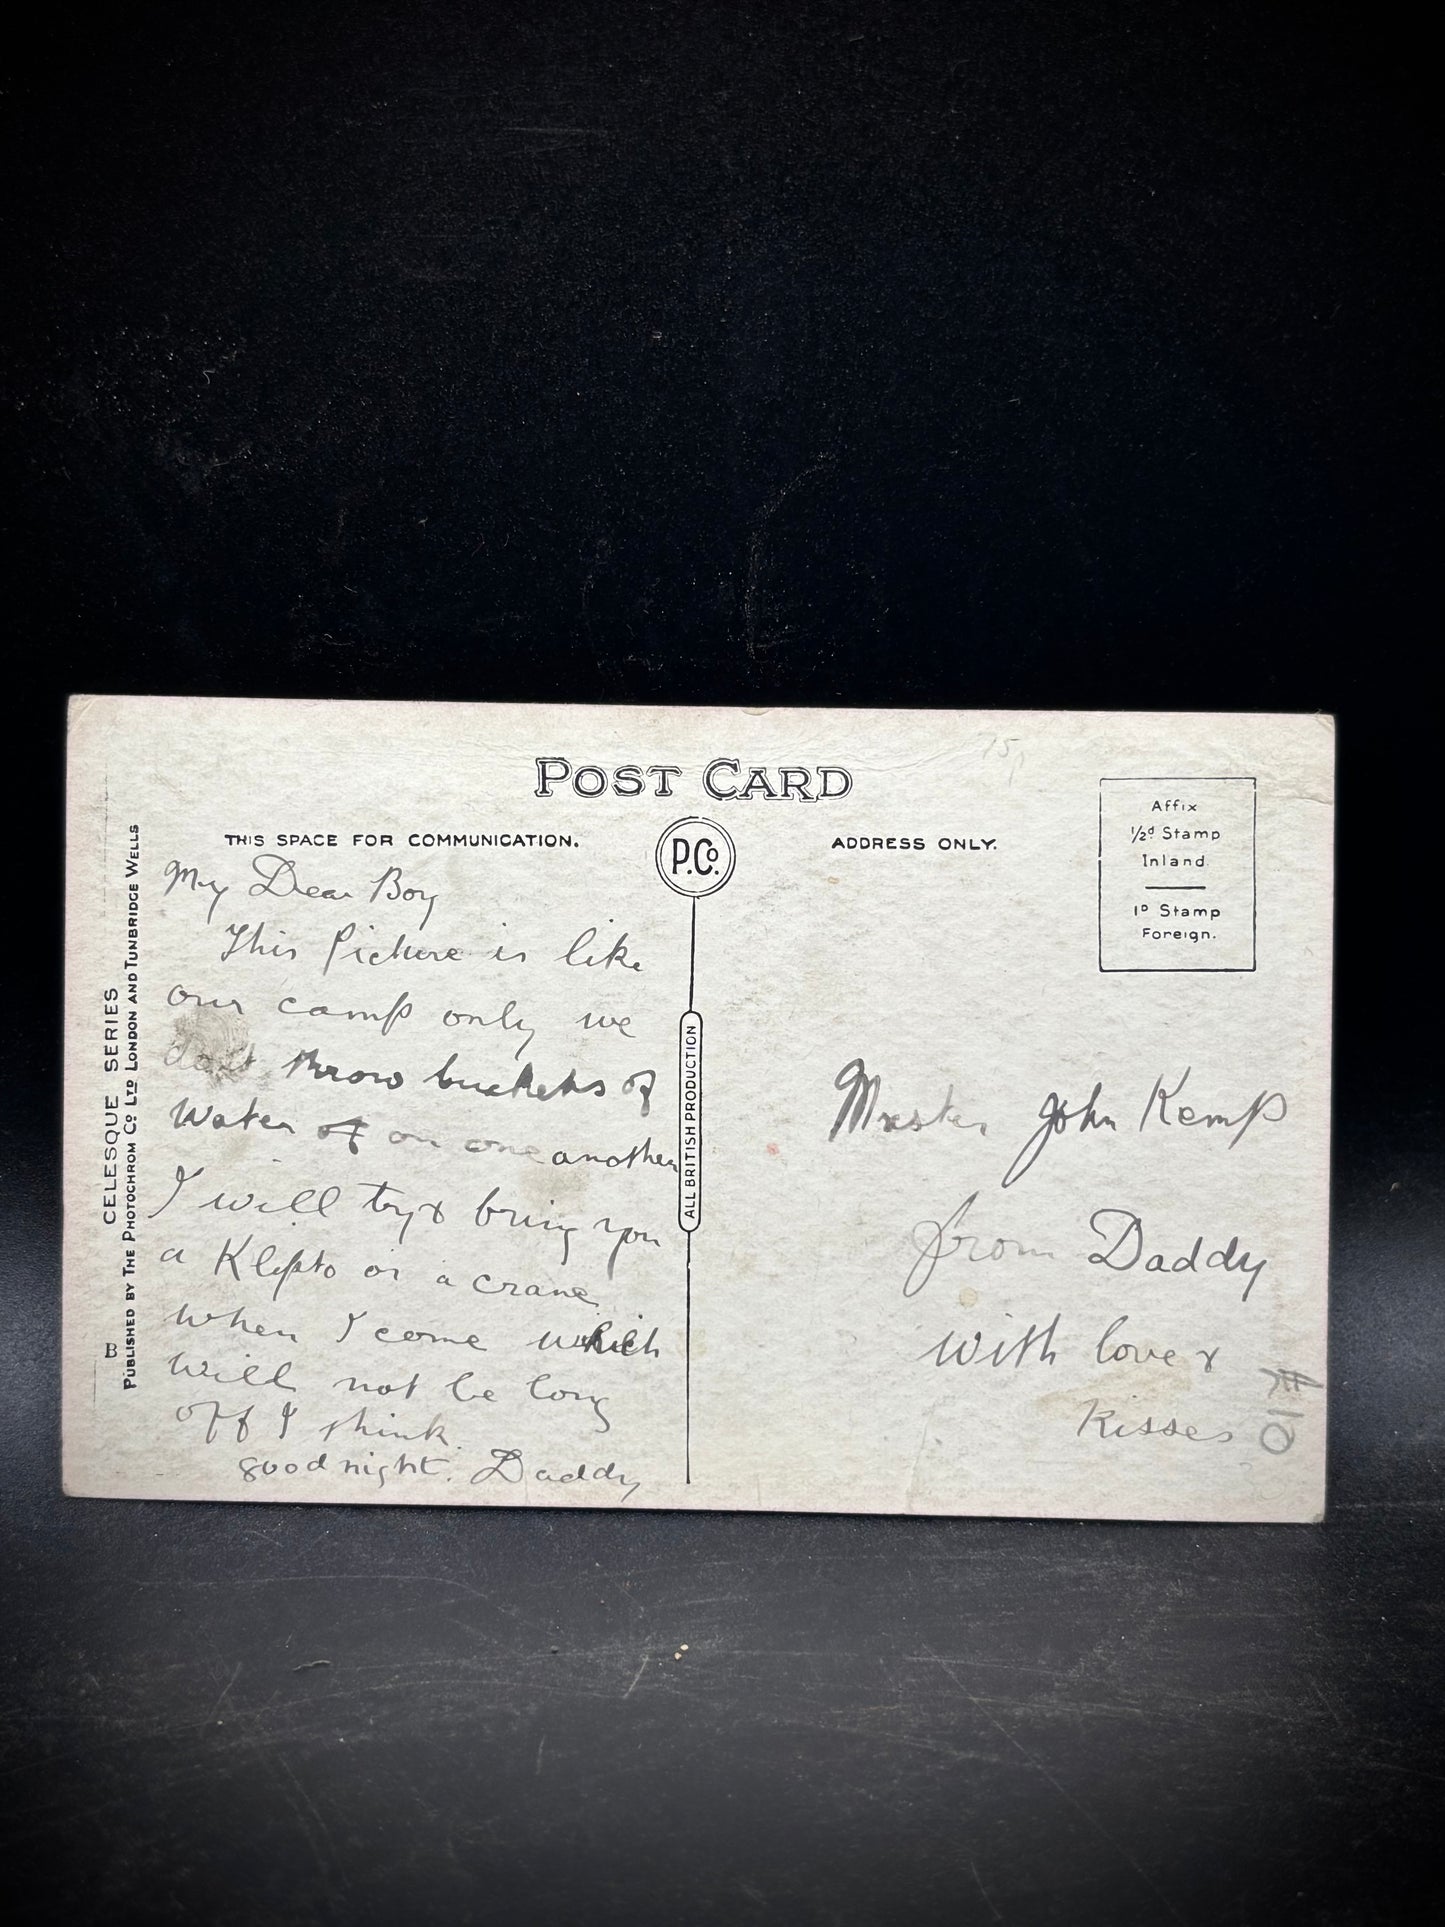 POST CARD
THIS SPACE FOR COMMUNICATION.
P.Co.
ADDRESS ONLY.
Affix
½d Stamp
Inland
1D Stamp
Foreign.
15p
CELESQUE SERIES
PUBLISHED BY THE PHOTOCHROM CO LTD LONDON AND TUNBRIDGE WELLS
B
ALL BRITISH PRODUCTION
My Dear Boy
This Picture is like
our camp only we
don't throw buckets of
water of on one another
I will try & bring you
a Klepto or a crane
when I come which
will not be long
off I think.
good night. Daddy
Master John Kemp
from Daddy
with love &
Kisses